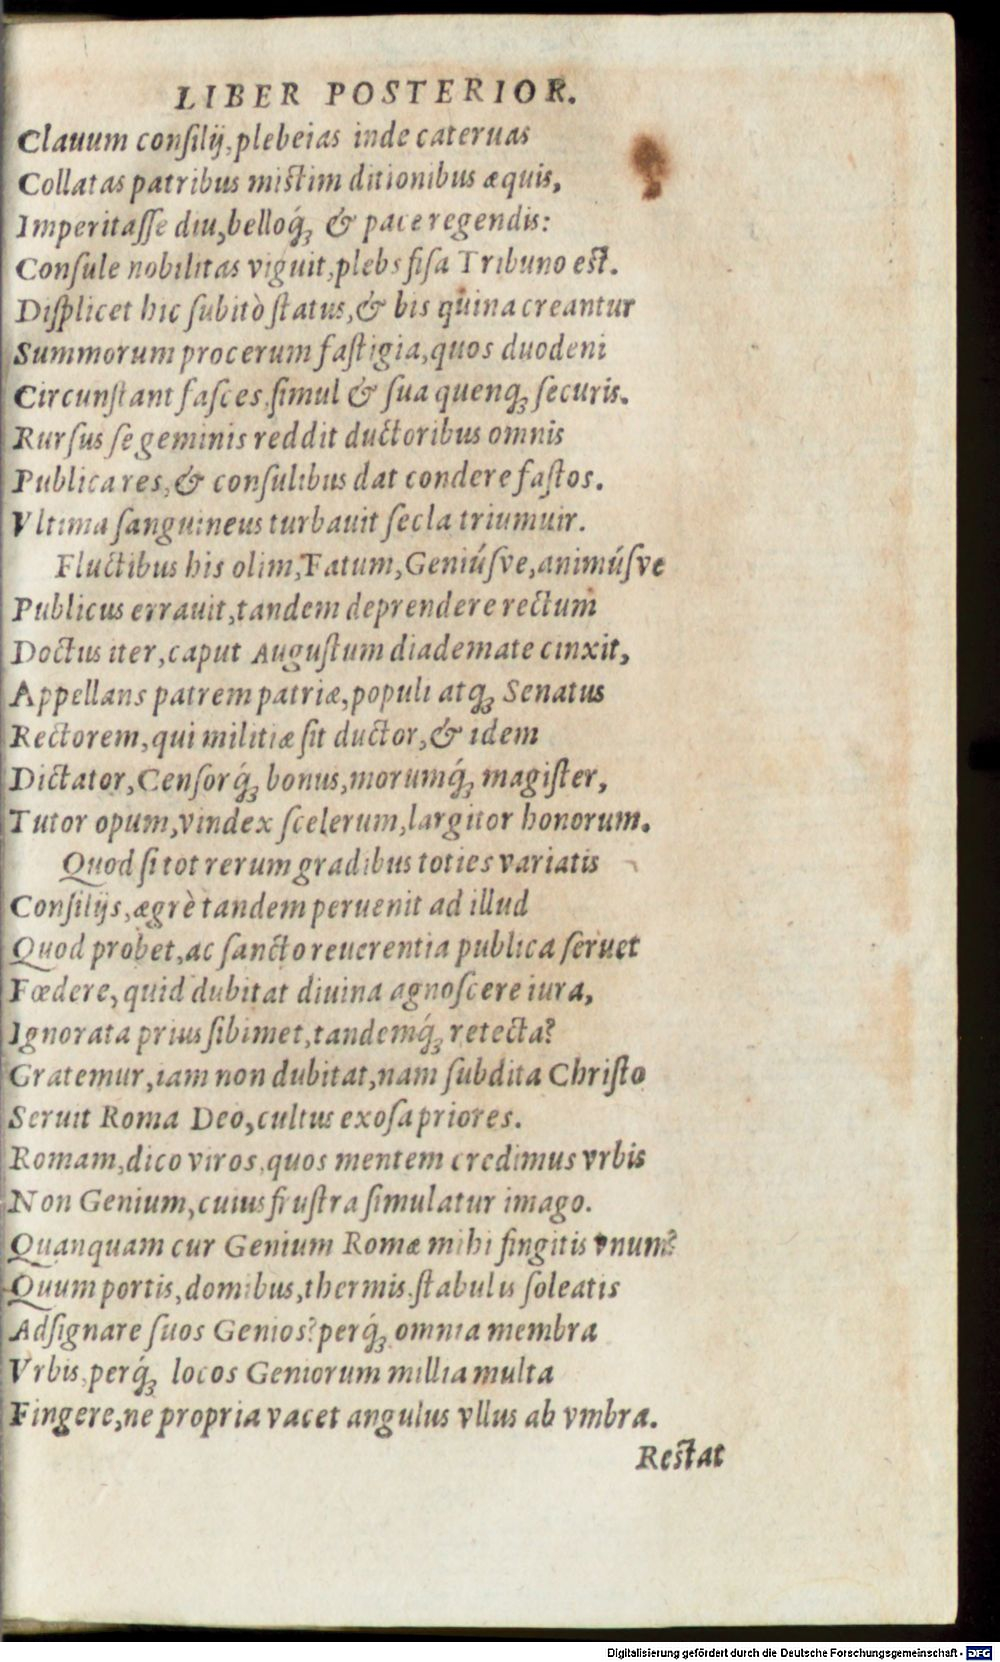 LIBER POSTERIOR.
Clauum conſilij, plebeias inde cateruas
Collatas patribus miſtim ditionibus æquis,
Imperitaſſe diu, belloq́ꝫ & pace regendis:
Conſule nobilitas viguit, plebs fiſa Tribuno eſt.
Diſplicet hic ſubitò ſtatus, & bis quina creantur
Summorum procerum faſtigia, quos duodeni
Circunſtant faſces, ſimul & ſua quenqꝫ ſecuris.
Rurſus ſe geminis reddit ductoribus omnis
Publica res, & conſulibus dat condere faſtos.
Vltima ſanguineus turbauit ſecla triumuir.
Fluctibus his olim, Fatum, Geniúſve, animúſve
Publicus errauit, tandem deprendere rectum
Doctus iter, caput Auguſtum diademate cinxit,
Appellans patrem patriæ, populi atqꝫ Senatus
Rectorem, qui militiæ ſit ductor, & idem
Dictator, Cenſorq́ꝫ bonus, morumq́ꝫ magiſter,
Tutor opum, vindex ſcelerum, largitor honorum.
Quod ſi tot rerum gradibus toties variatis
Conſilijs, ægrè tandem peruenit ad illud
Quod probet, ac ſancto reuerentia publica ſeruet
Fœdere, quid dubitat diuina agnoſcere iura,
Ignorata prius ſibimet, tandemq́ꝫ retecta?
Gratemur, iam non dubitat, nam ſubdita Chriſto
Seruit Roma Deo, cultus exoſa priores.
Romam, dico viros, quos mentem credimus vrbis
Non Genium, cuius fruſtra ſimulatur imago.
Quanquam cur Genium Romæ mihi fingitis vnum?
Quum portis, domibus, thermis, ſtabulis ſoleatis
Adſignare ſuos Genios? perq́ꝫ omnia membra
Vrbis, perq́ꝫ locos Geniorum millia multa
Fingere, ne propria vacet angulus vllus ab vmbra.
Reſtat
Digitalisierung gefördert durch die Deutsche Forschungsgemeinschaft - DFG